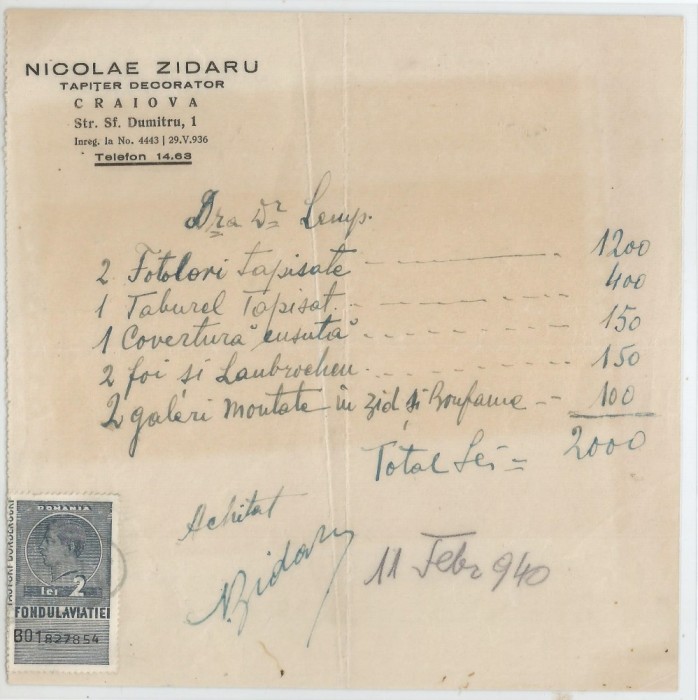 NICOLAE ZIDARU
TAPIȚER DECORATOR
CRAIOVA
Str. Sf. Dumitru, 1
Inreg. la No. 4443 | 29.V.936
Telefon 14.63
Dra Dr Lemp.
2 Fotolori tapisate 1200
1 Taburel Tapisat 400
1 Covertură cusută 150
2 foi si 150
2 galeri montate în zid și 100
Total Lei = 2000
Achitat
N. Zidaru
11 Febr 940
ROMANIA
lei 2
FONDUL AVIATIEI
B01 827854